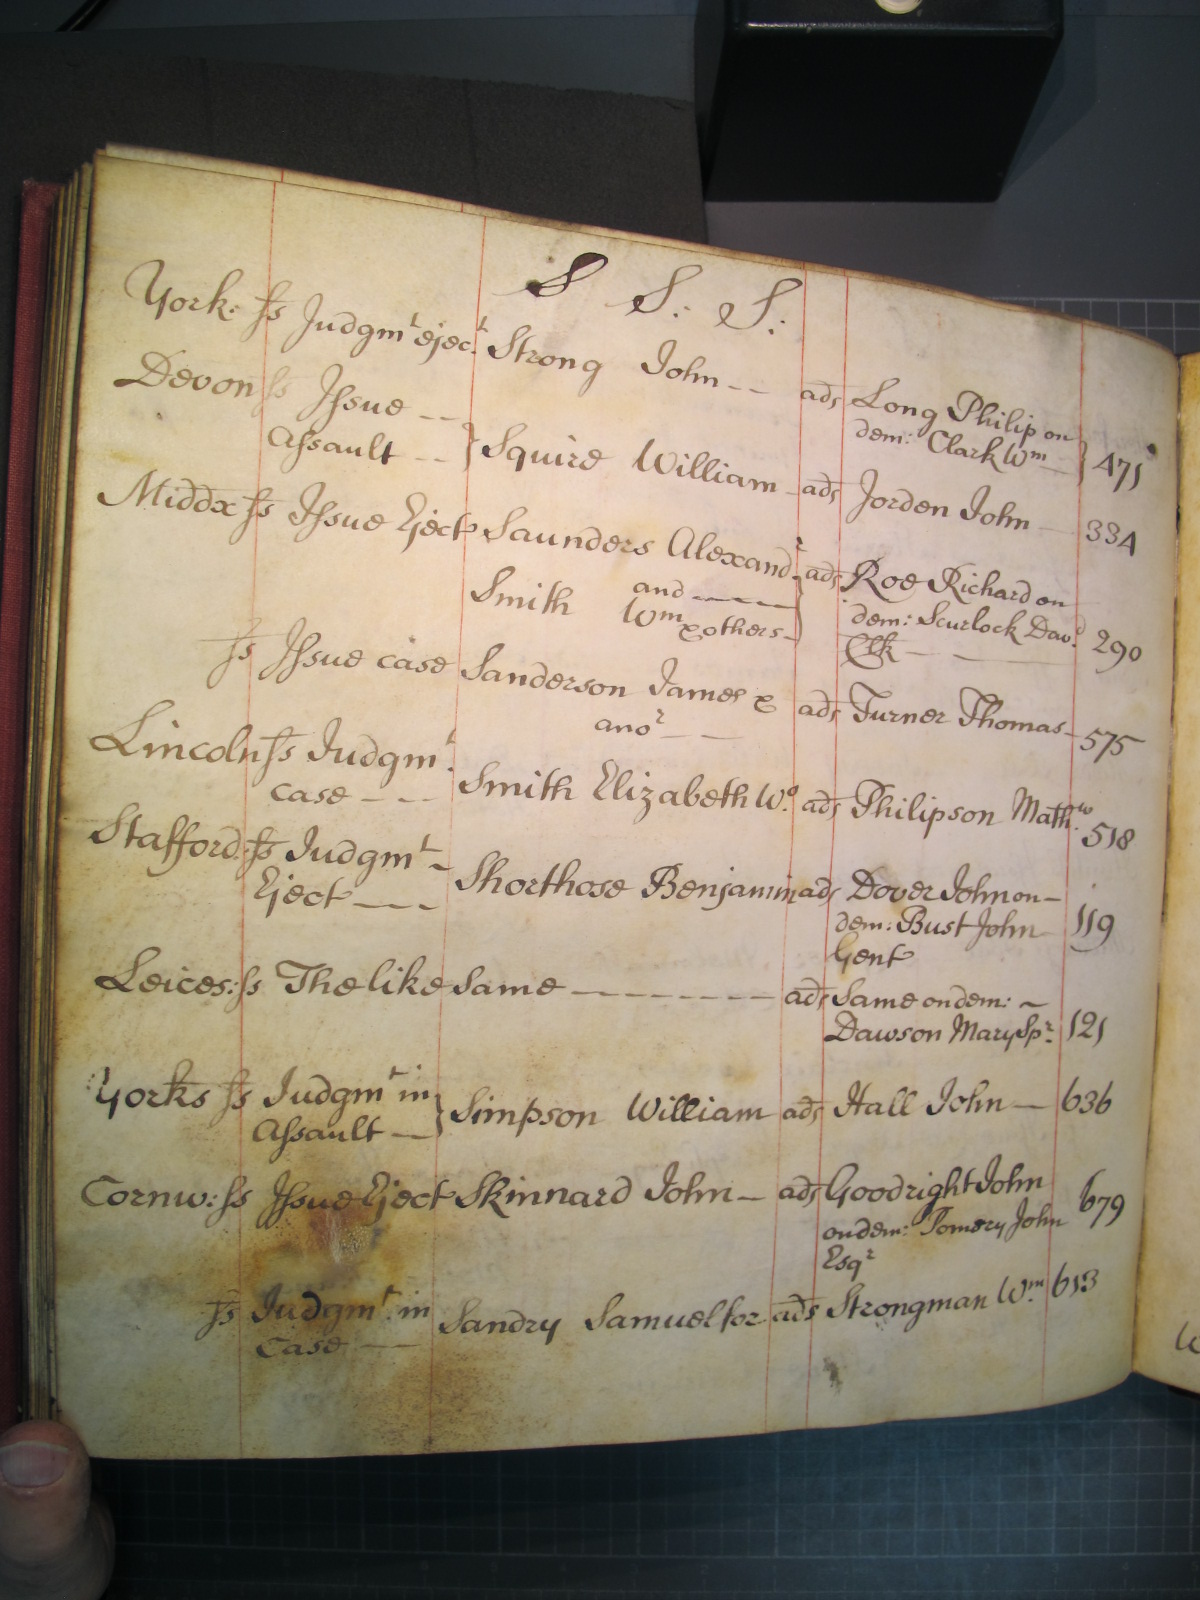 S S: S:
York: ss Judgmt eject. Strong John -- ads Long Philip on
dem: Clark Wm } 471
Devon ss Issue --
Assault -- } Squire William - ads Jorden John - 334
Middx ss Issue Eject Saunders Alexandr ads Roe Richard on
and
Smith Wm & others - } dem: Scurlock Davd. 290
Clk - -
ss Issue case Sanderson James & ads Turner Thomas - 575
anor - -
Lincoln ss Judgmt.
case - - - Smith Elizabeth Wo. ads Philipson Mathw. 518
Stafford: ss Judgmt -
Eject - - - Shorthose Benjamin ads Dover John on - 119
dem: Bust John
Gent
Leices: ss The like same - - - - - - - ads Same on dem: ~
Dawson Mary Spr. 121
Yorks ss Judgmt in
Assault - } Simpson William ads Hall John - 636
Cornw: ss Issue Eject Skinnard John - ads Goodright John
on dem: Pomery John 679
Esqr
ss Judgmt. in Sandry Samuel for ads Strongman Wm. 613
Case -